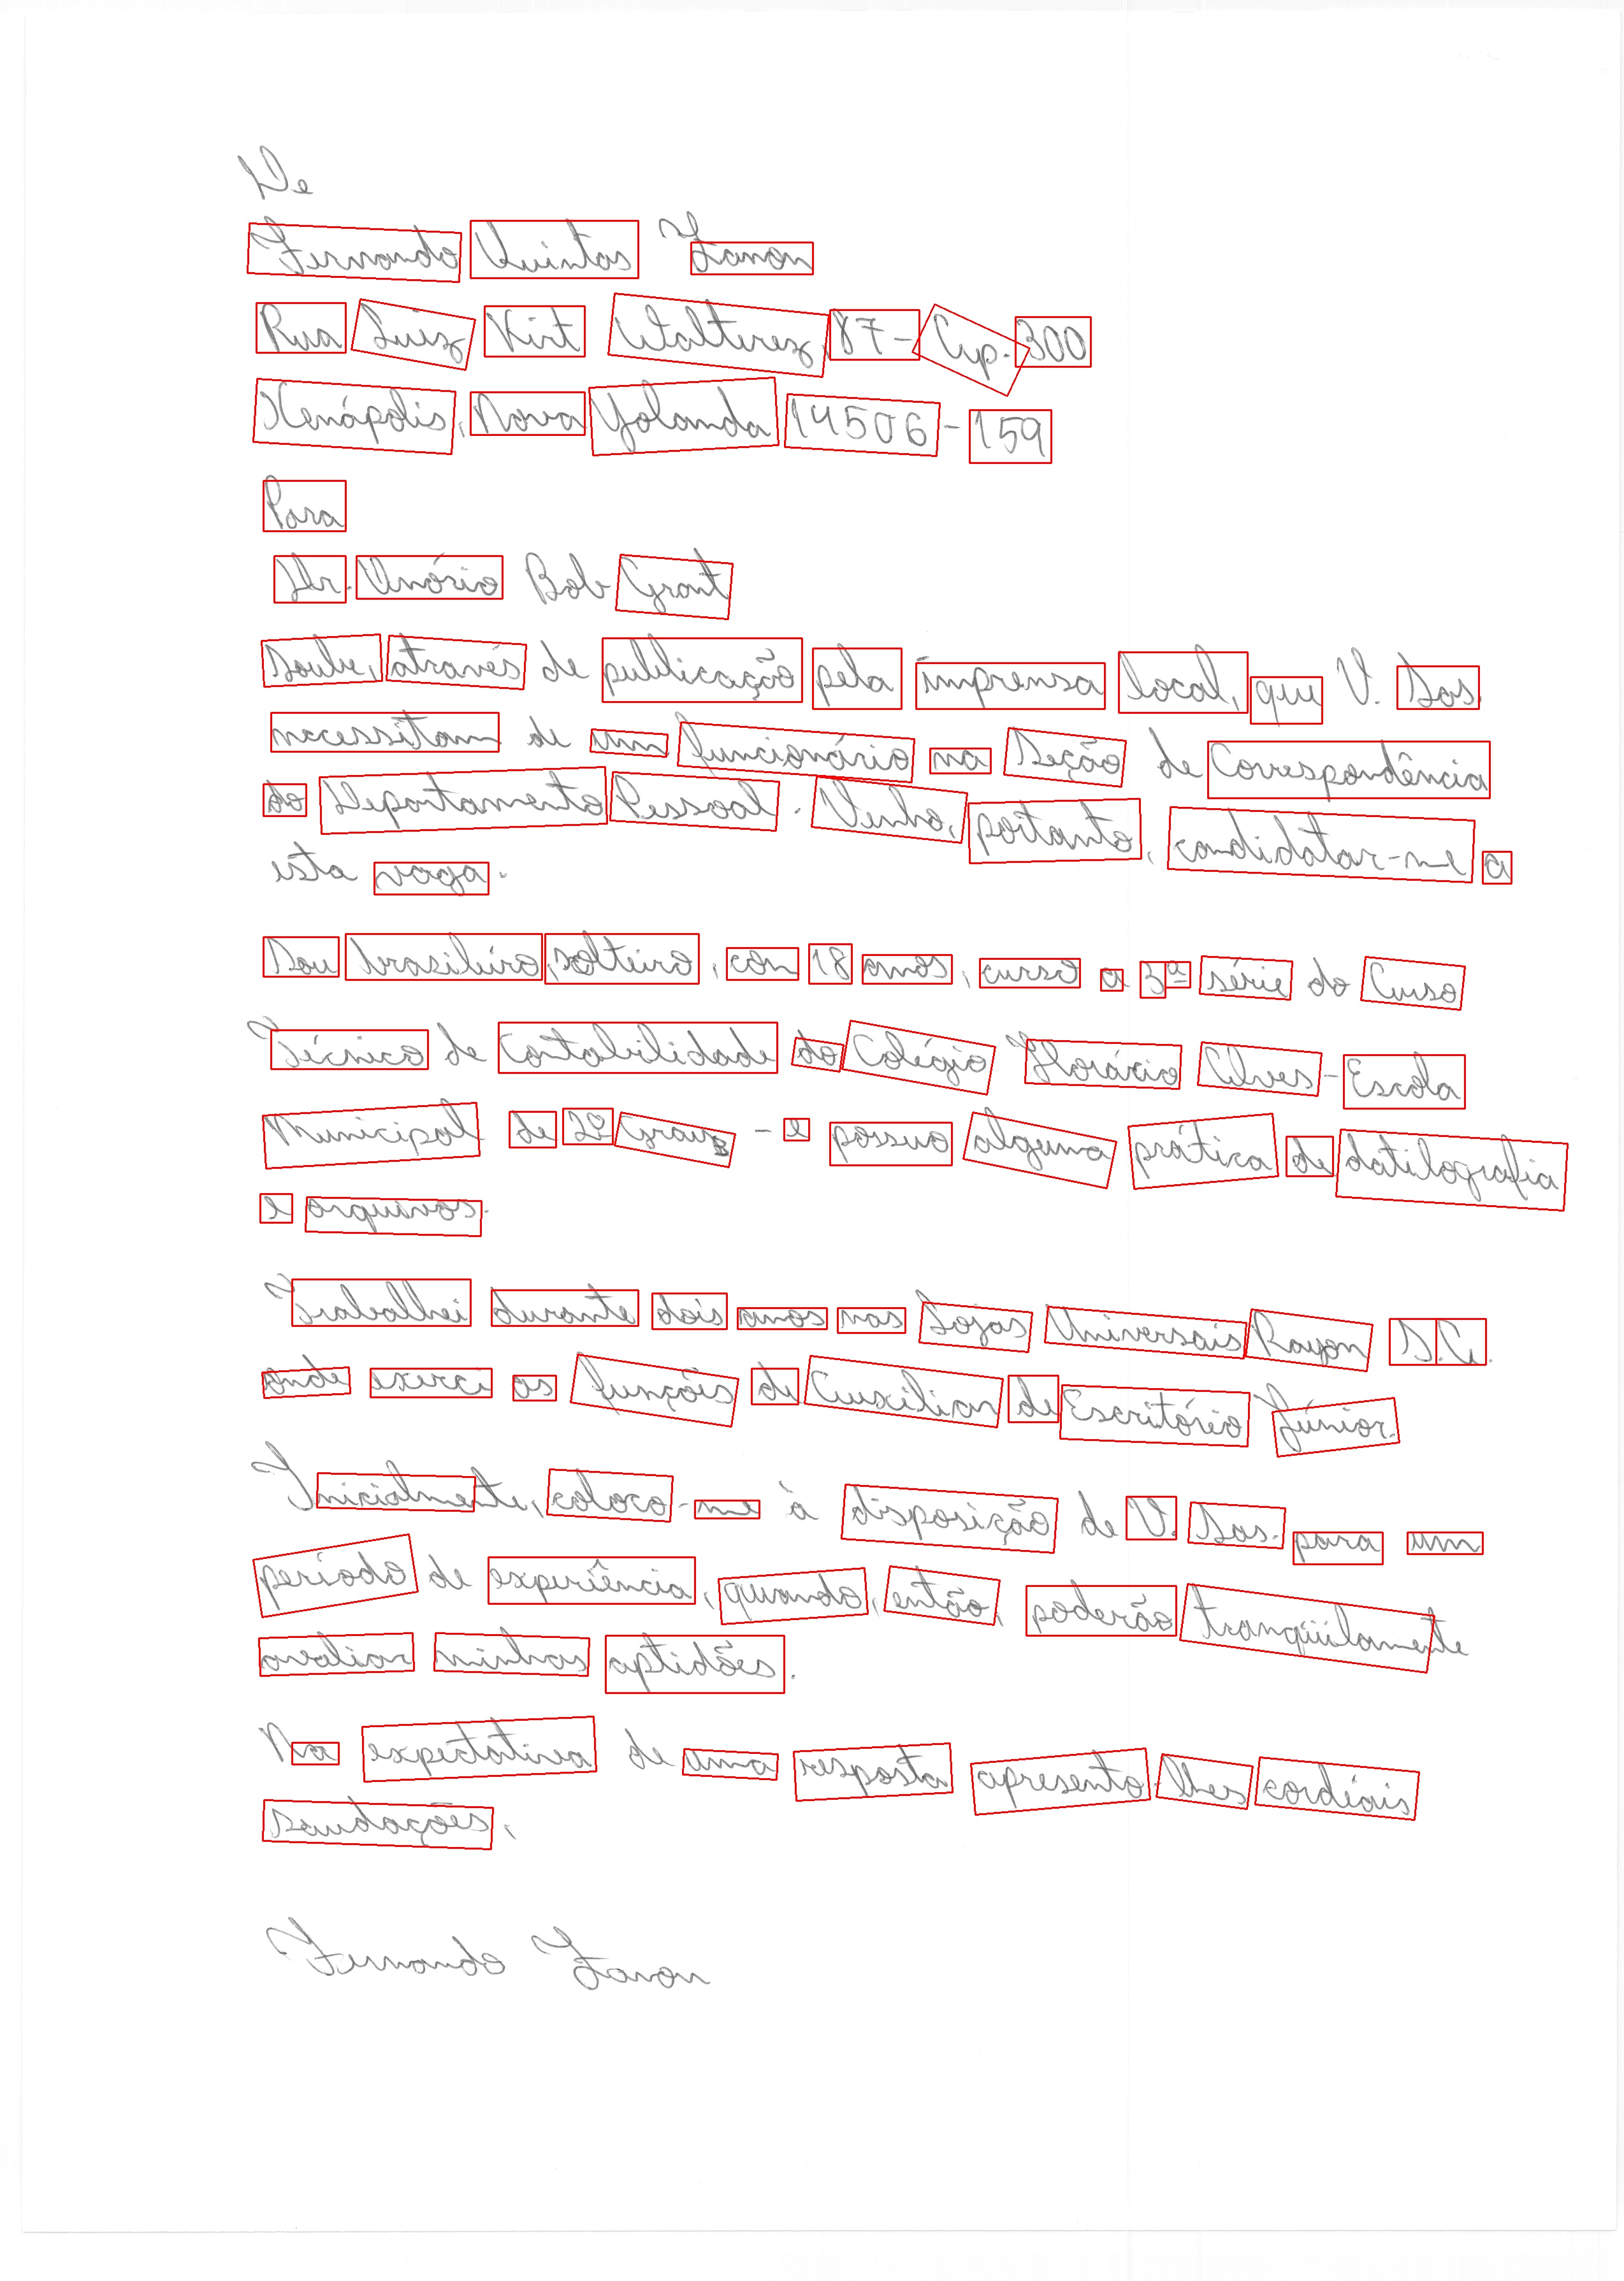 De
Fernando Quintas Zanon
Rua Luiz Kirt Walterez, 87 - Cep. 300
Xenápolis, Nova Yolanda 14506-159
Para
Dr. Onório Bob Grant
Soube, através de publicação pela imprensa local, que V. Sas.
necessitam de um funcionário na Seção de Correspondência
do Departamento Pessoal. Venho, portanto, candidatar-me a
esta vaga.
Sou brasileiro, solteiro, com 18 anos, curso a 3ª série do Curso
Técnico de Contabilidade do Colégio Horácio Alves - Escola
Municipal de 2º Graus - e possuo alguma prática de datilografia
e arquivos.
Trabalhei durante dois anos nas Lojas Universais Rayon S.A.
onde exerci as funções de Auxiliar de Escritório Júnior.
Inicialmente, coloco-me à disposição de V. Sas. para um
período de experiência, quando, então, poderão tranqüilamente
avaliar minhas aptidões.
Na expectativa de uma resposta apresento-lhes cordiais
saudações,
Fernando Zanon